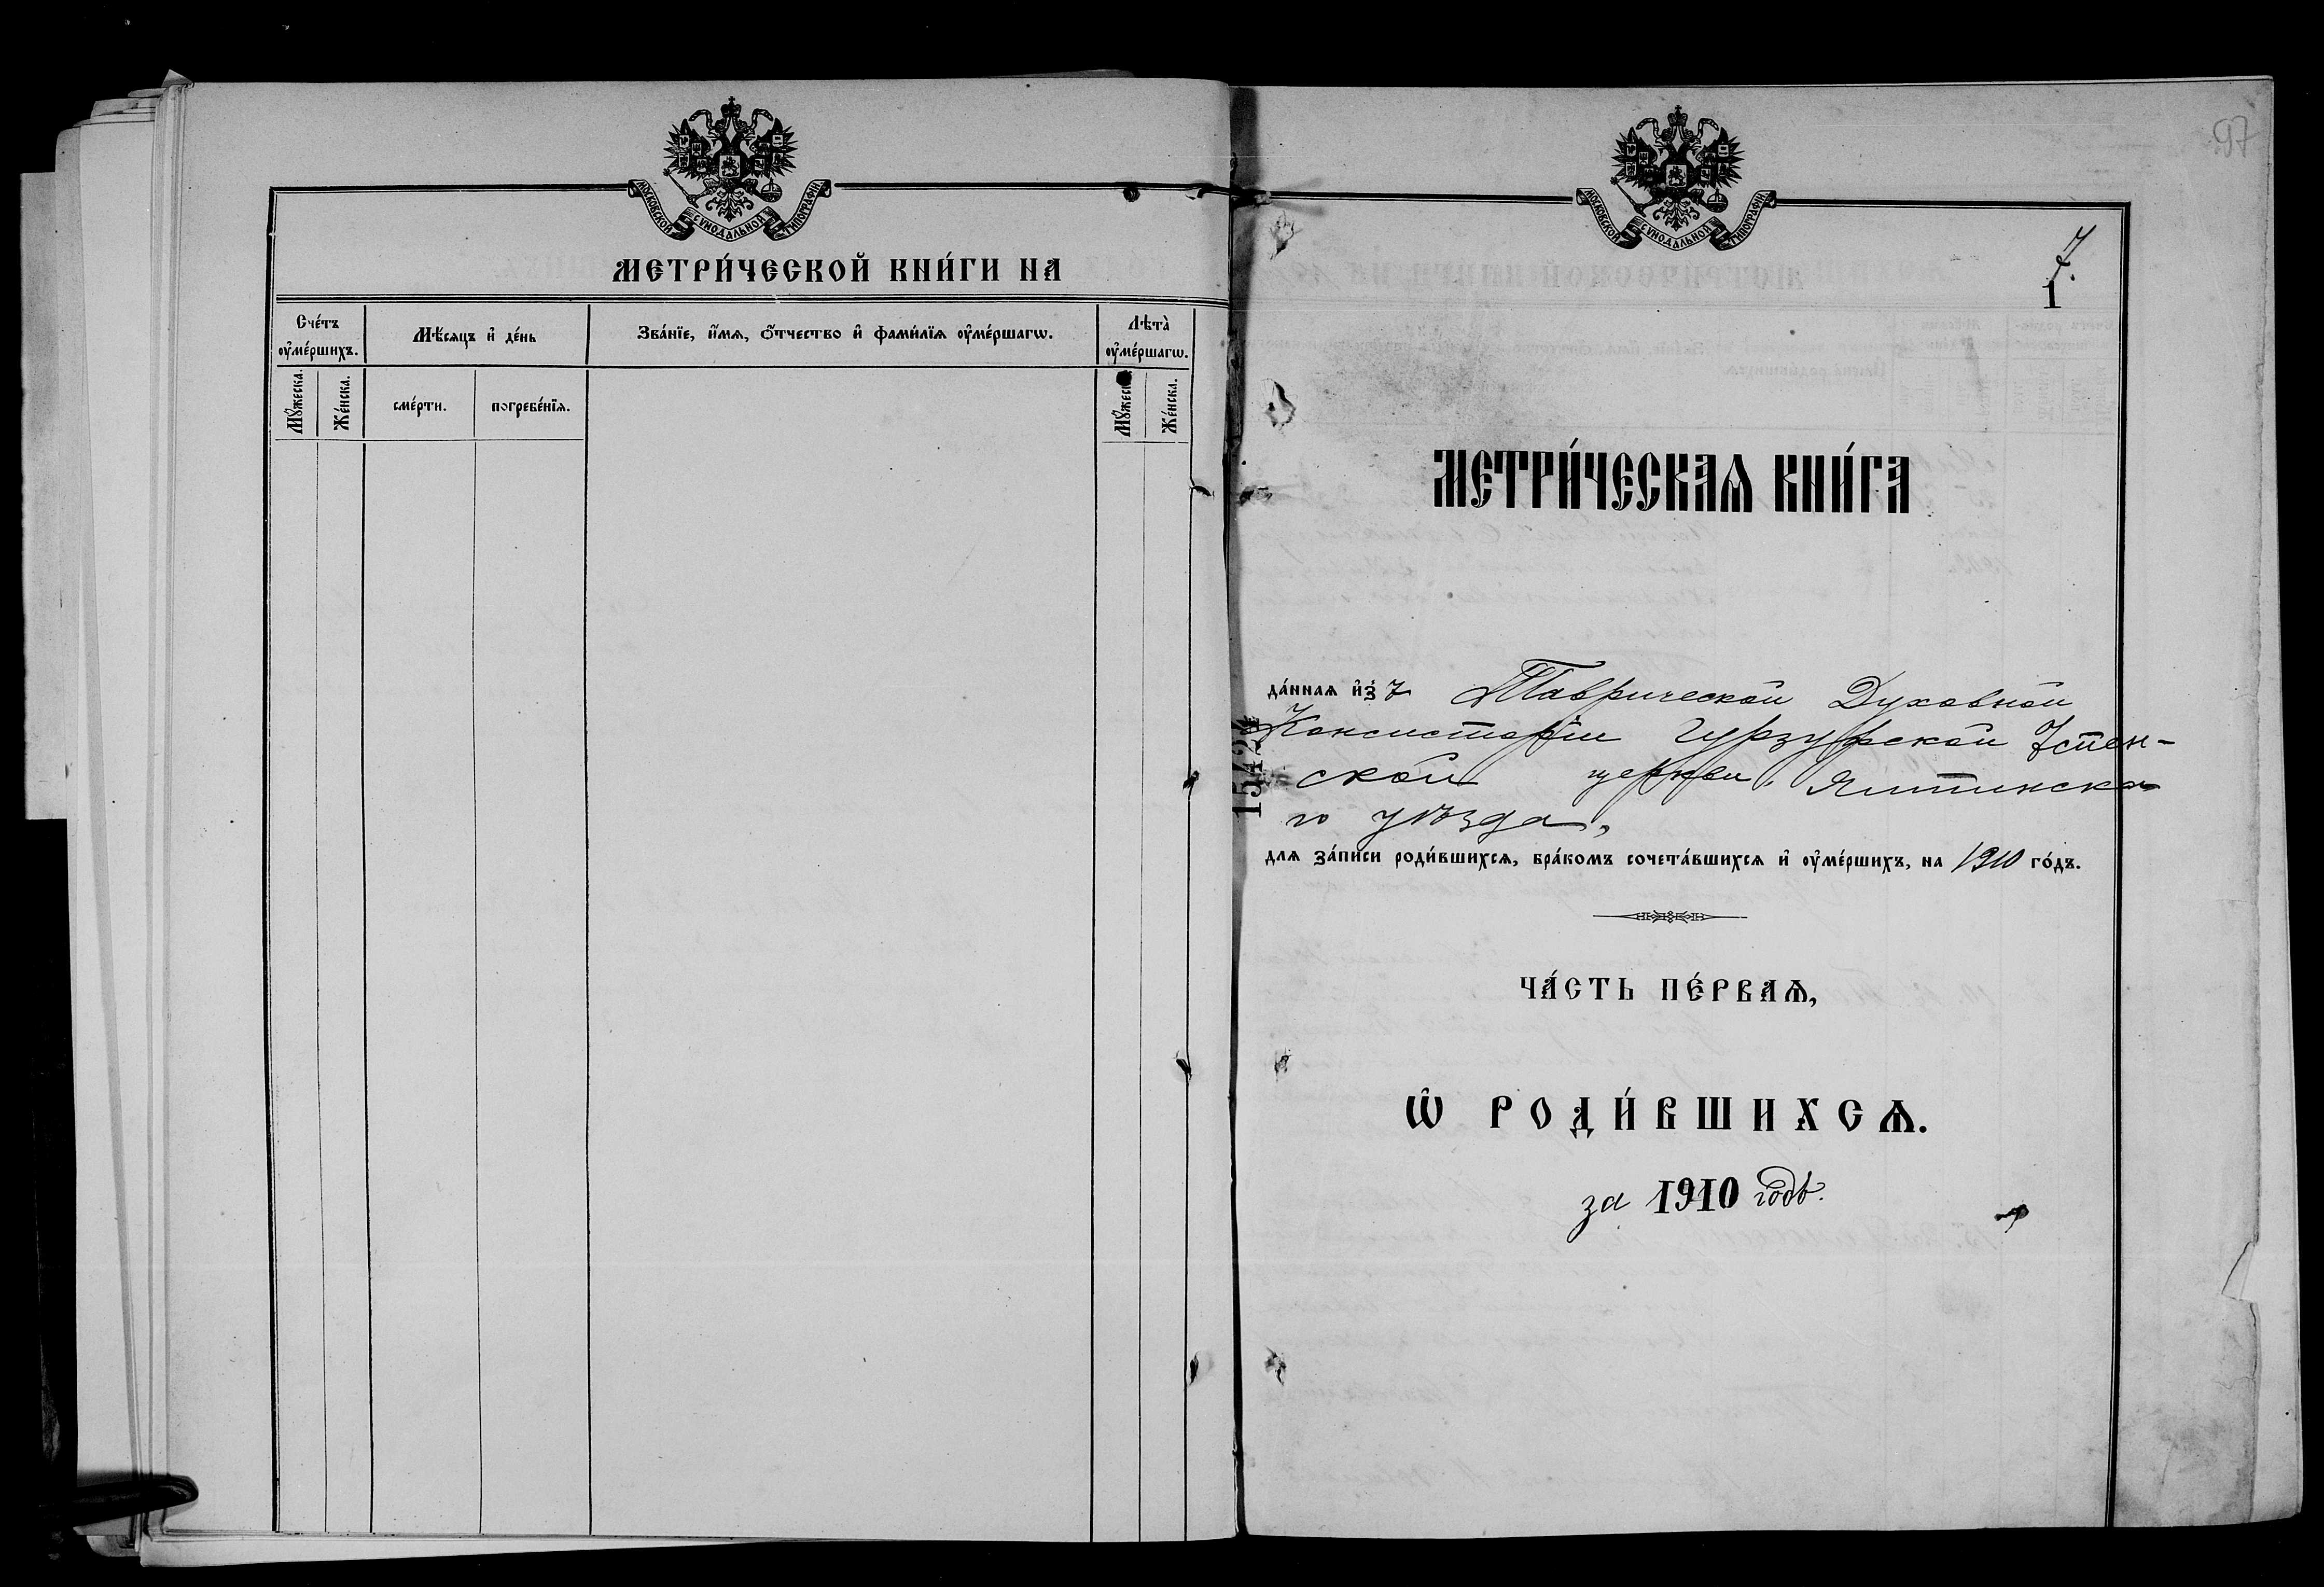 МОСКОВСКОЙ СѴНОДАЛЬНОЙ ТИПОГРАФІИ.
МЕТРИ́ЧЕСКОЙ КНИ́ГИ НА
Сче́тъ ᲂу҆ме́ршихъ.
Мѣ́сяцъ и҆ де́нь
Зва́нїе, и҆́мѧ, ѻ҆́тчество и҆ фами́лїѧ ᲂу҆ме́ршагѡ.
Лѣта̀ ᲂу҆ме́ршагѡ.
Мꙋ́жеска.
Же́нска.
сме́рти.
погребе́нїѧ.
Мꙋ́жеска.
Же́нска.
97
МОСКОВСКОЙ СѴНОДАЛЬНОЙ ТИПОГРАФІИ.
7.
1
МЕТРИ́ЧЕСКАѦ КНИ́ГА
да́ннаѧ и҆зъ Таврической Духовной
Консисторіи Гурзуфской Успен-
ской церкви, Ялтинска-
го уѣзда,
15424
длѧ за́писи роди́вшихсѧ, бра́комъ сочета́вшихсѧ и҆ ᲂу҆ме́ршихъ, на 1910 го́дъ.
ЧА́СТЬ ПЕ́РВАѦ,
Ѽ РОДИ́ВШИХСѦ.
за 1910 годъ.